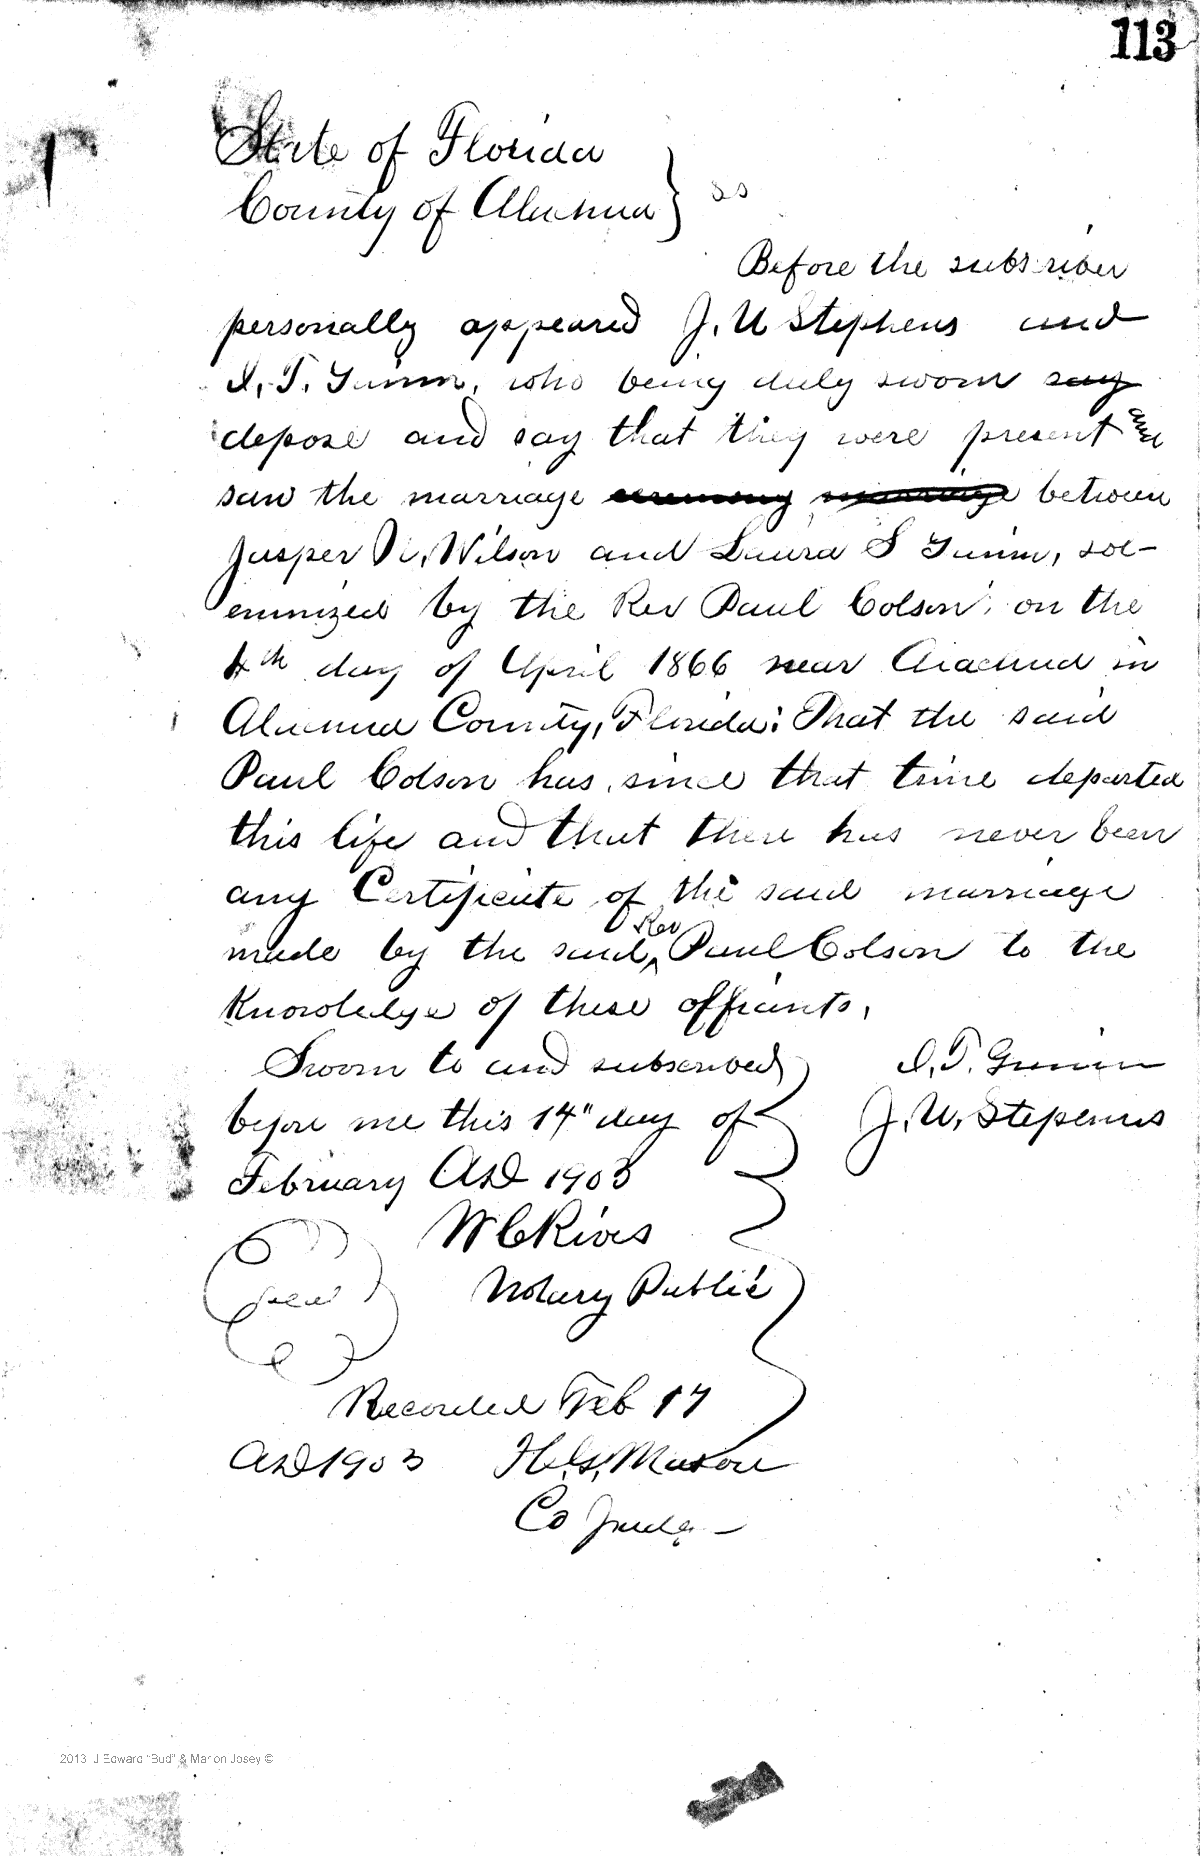 113
State of Florida
County of Alachua } ss
Before the subscriber
personally appeared J. W Stephens and
I. T. Guinn, who being duly sworn say
depose and say that they were present and
saw the marriage ceremony marriage between
Jasper N. Wilson and Laura S Guinn, sol-
emnized by the Rev Paul Colson, on the
4th day of April 1866 near Alachua in
Alachua County, Florida: That the said
Paul Colson has since that time departed
this life and that there has never been
any Certificate of the said marriage
made by the said Rev Paul Colson to the
knowledge of these affiants.
Sworn to and subscribed I. T. Guinn
before me this 14" day of J. W. Stephens
February AD 1903
W C Rives
Seal Notary Public
Recorded Feb 17
AD 1903 H. G. Mason
Co Judge
2013 J Edward "Bud" & Marion Josey ©